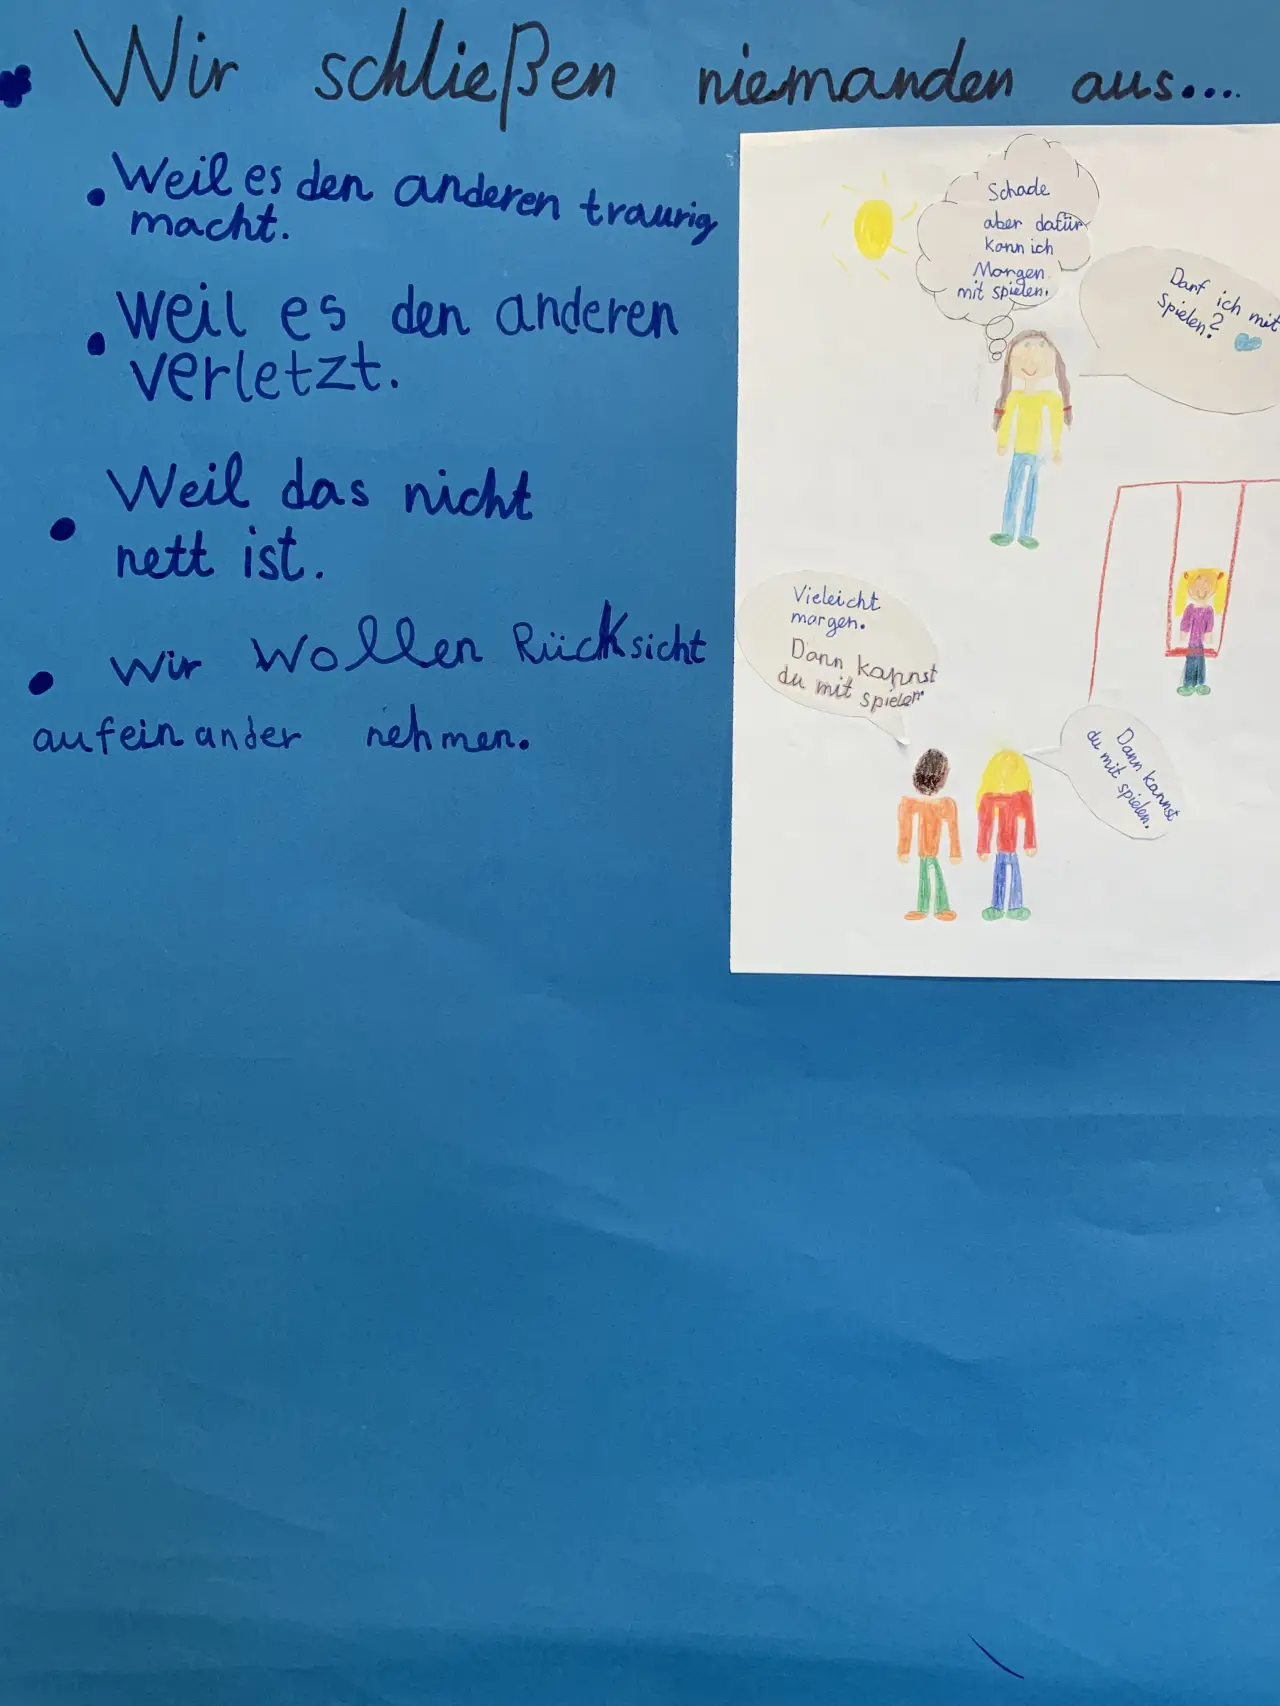 Wir schließen niemanden aus....
Weil es den anderen traurig
macht.
Weil es den anderen
verletzt.
Weil das nicht
nett ist.
Wir wollen Rücksicht
aufeinander nehmen.
Schade
aber dafür
kann ich
Morgen
mit spielen.
Darf ich mit
spielen?
Vieleicht
morgen.
Dann kannst
du mit spielen
Dann kannst
du mit spielen.